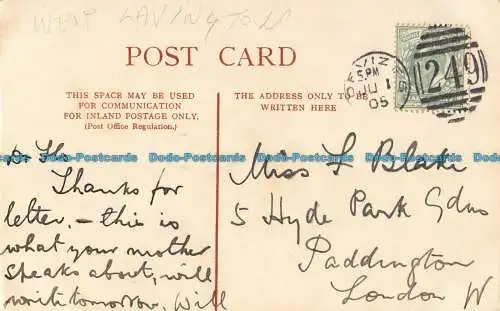 WEST LAVINGTON
POST CARD
THIS SPACE MAY BE USED
FOR COMMUNICATION
FOR INLAND POSTAGE ONLY.
(Post Office Regulation.)
THE ADDRESS ONLY TO BE
WRITTEN HERE
DEVIZES
5 PM
JU 1
05
249
Dodo-Postcards Dodo-Postcards Dodo-Postcards Dodo-Postcards
D.
Thanks for
letter. – this is
what your mother
speaks about, will
write tomorrow, Will
Miss L Blake
5 Hyde Park Gdns
Paddington
London W